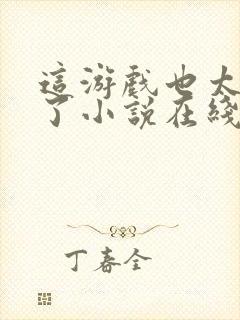 這游戲也太
了小說在綫
丁春全